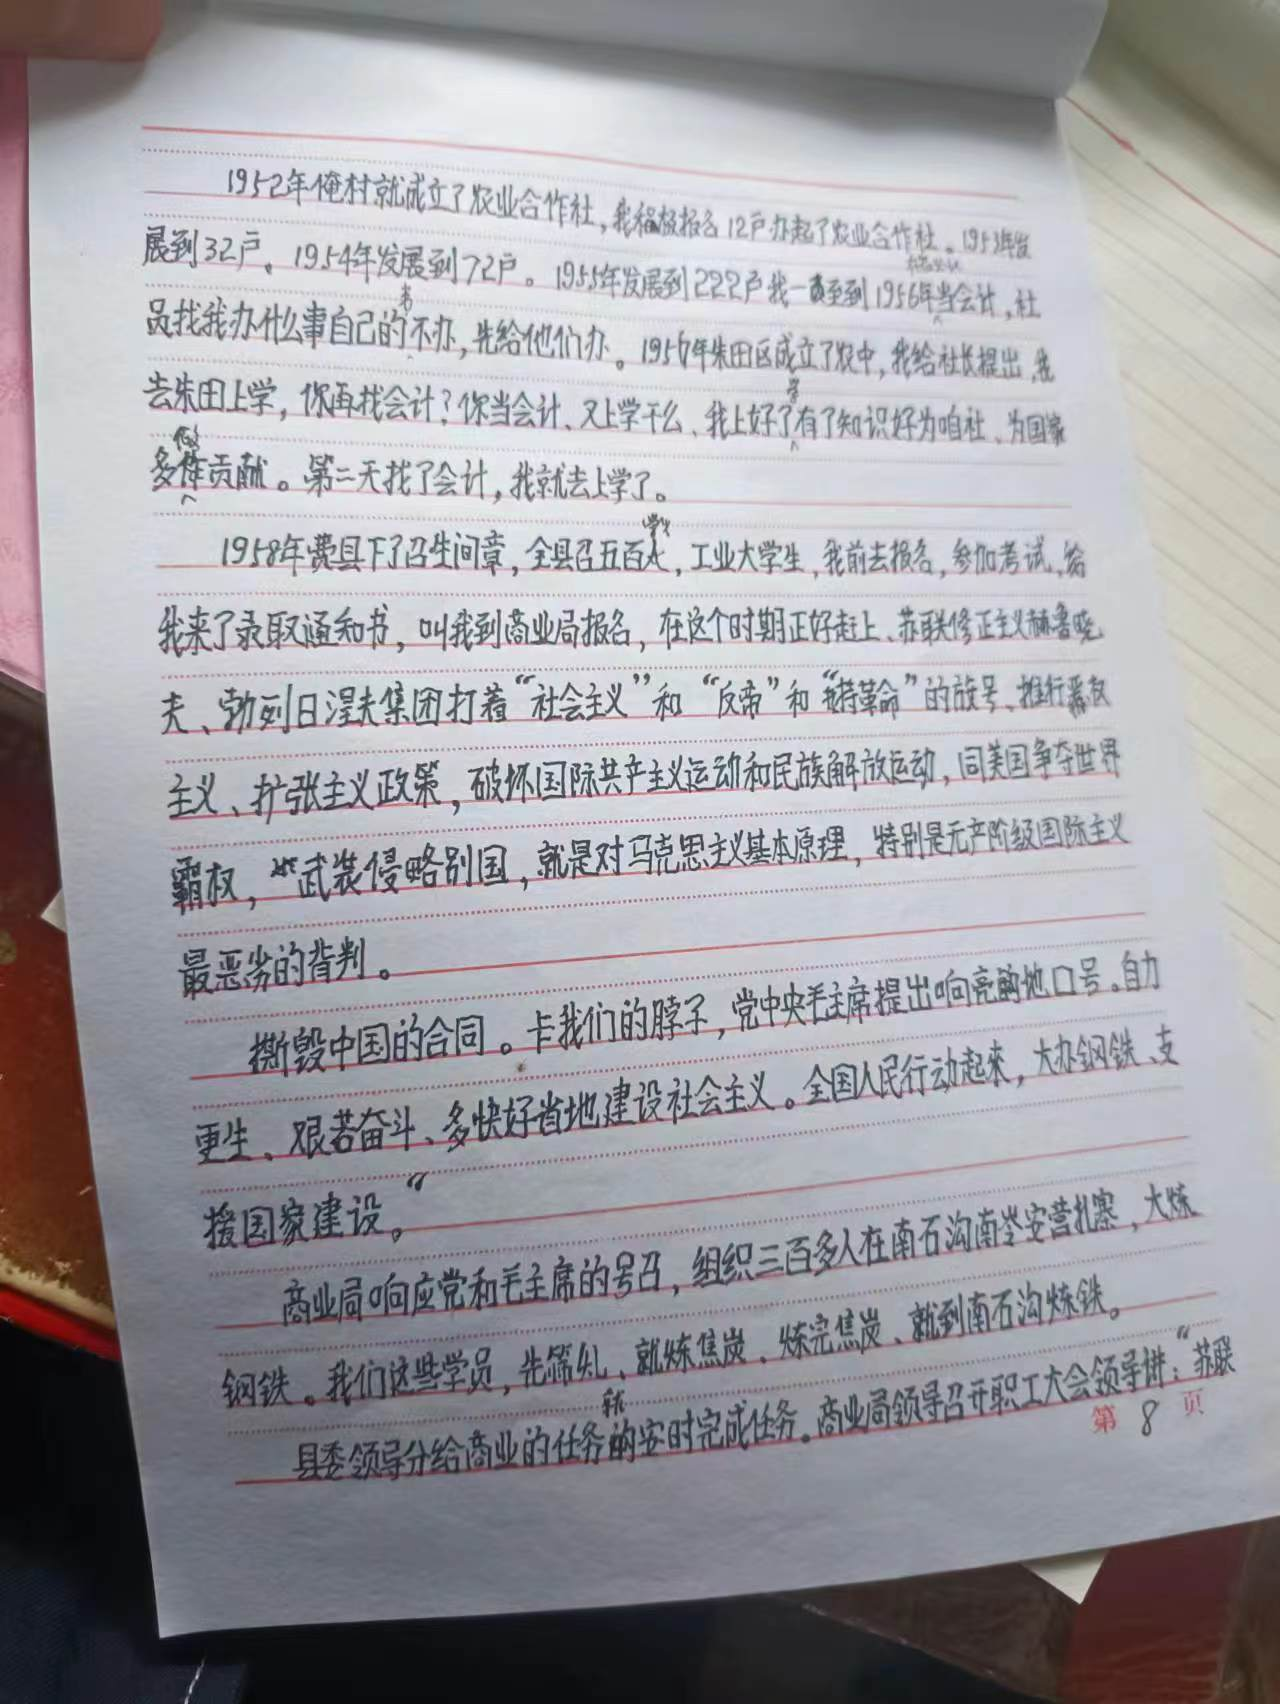 1952年俺村就成立了农业合作社，我积极报名12户办起了农业合作社。1953年发
展到32户。1954年发展到72户。1955年发展到222户我一直至到1956年当会计，社
员找我办什么事自己的不办，先给他们办。1956年朱田区成立了农中，我给社长提出，我
去朱田上学，你再找会计？你当会计、又上学干么、我上好学了有了知识好为咱社、为国家
多做贡献。第二天找了会计，我就去上学了。
1958年费县下了召生间章，全县召五百人，工业大学生，我前去报名，参加考试，给
我来了录取通知书，叫我到商业局报名，在这个时期正好赶上、苏联修正主义赫鲁晓
夫、勃列日涅夫集团打着“社会主义”和“反帝”和“支持革命”的旗号、推行霸权
主义、扩张主义政策，破坏国际共产主义运动和民族解放运动，同美国争夺世界
霸权，武装侵略别国，就是对马克思主义基本原理，特别是无产阶级国际主义
最恶劣的背判。
撕毁中国的合同。卡我们的脖子，党中央毛主席提出响亮的地口号。自力
更生、艰苦奋斗、多快好省地建设社会主义。全国人民行动起来，大办钢铁、支
援国家建设。”
商业局响应党和毛主席的号召，组织三百多人在南石沟南岺安营扎寨，大炼
钢铁。我们这些学员，先筛礼、就炼焦炭、炼完焦炭、就到南石沟炼铁。
县委领导分给商业的任务安时完成任务。商业局领导召开职工大会领导讲：“苏联
第8页